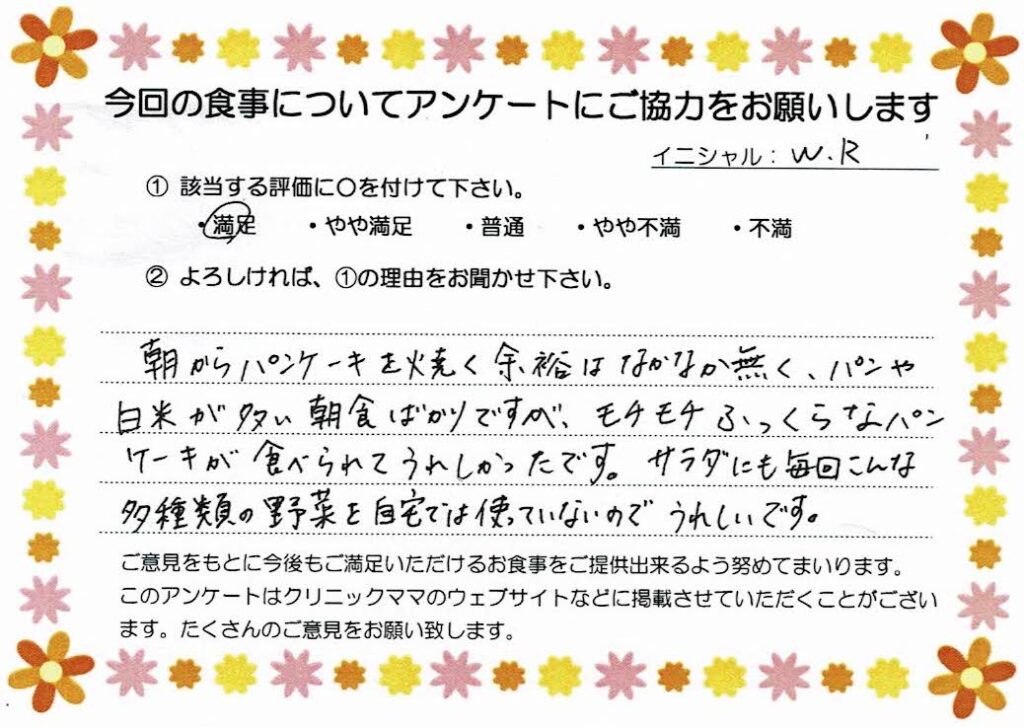 今回の食事についてアンケートにご協力をお願いします
イニシャル：W.R
① 該当する評価に〇を付けて下さい。
・満足　・やや満足　・普通　・やや不満　・不満
② よろしければ、①の理由をお聞かせ下さい。
朝からパンケーキを焼く余裕はなかなか無く、パンや
白米が多い朝食ばかりですが、モチモチふっくらなパン
ケーキが食べられてうれしかったです。サラダにも毎回こんな
多種類の野菜を自宅では使っていないのでうれしいです。
ご意見をもとに今後もご満足いただけるお食事をご提供出来るよう努めてまいります。
このアンケートはクリニックママのウェブサイトなどに掲載させていただくことがござい
ます。たくさんのご意見をお願い致します。